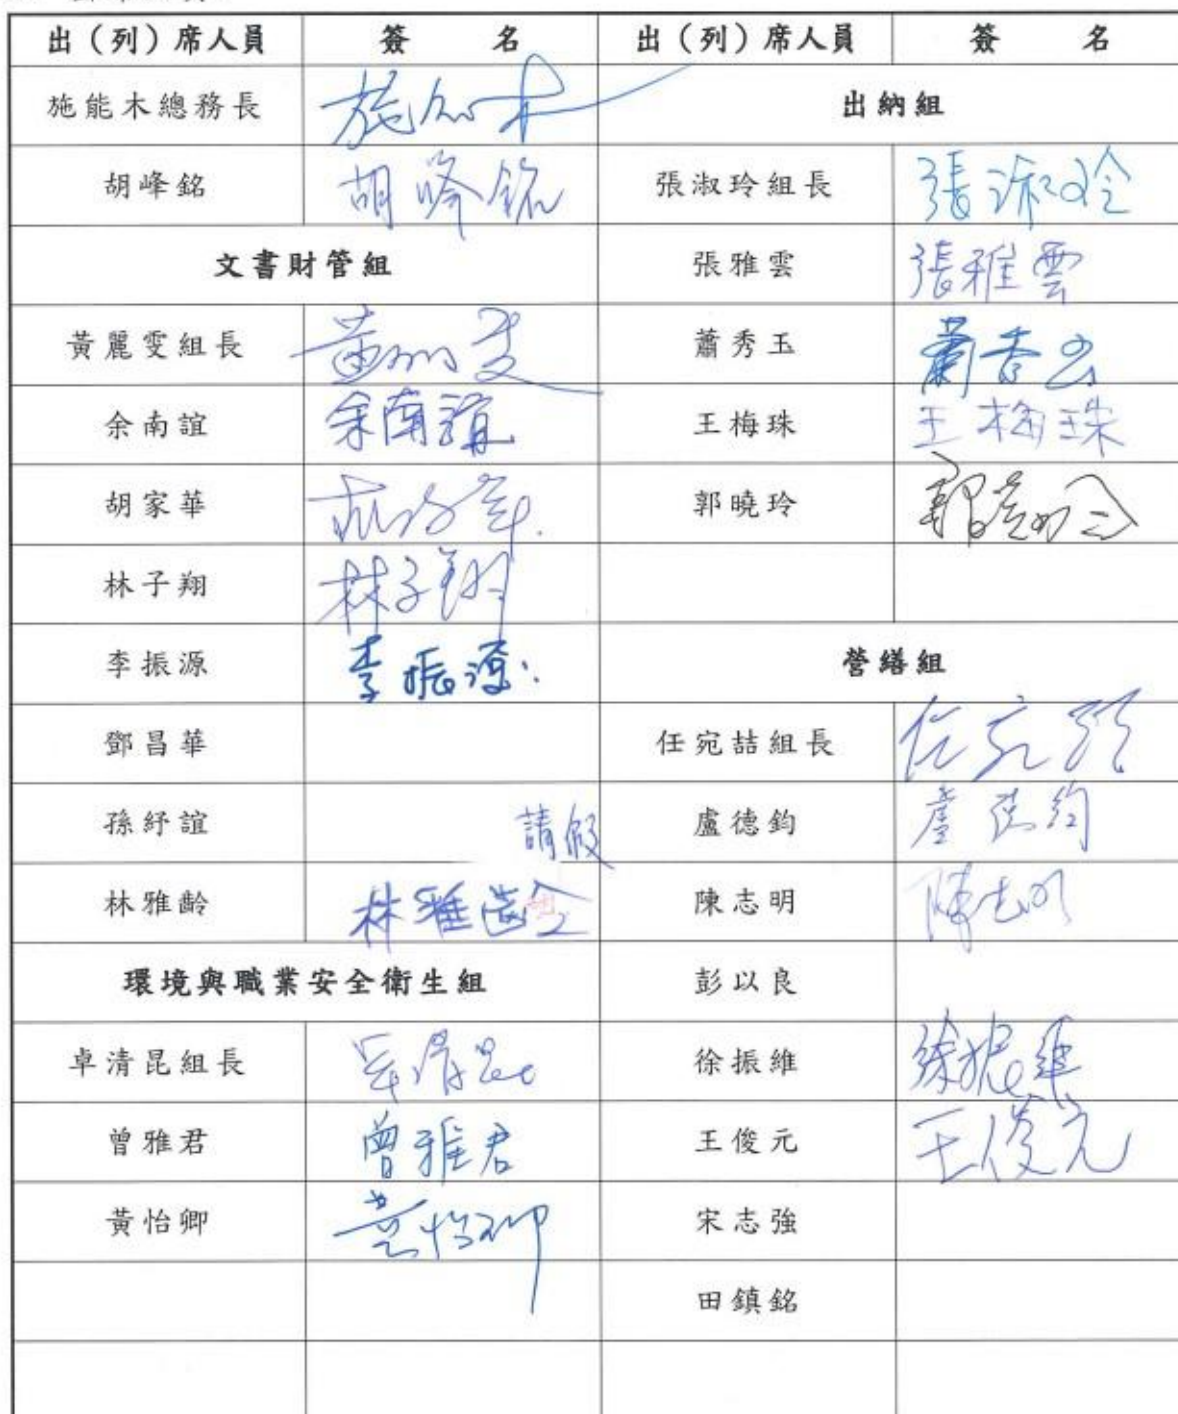 出（列）席人員 簽 名 出（列）席人員 簽 名
施能木總務長 施能木 出納組
胡峰銘 胡峰銘 張淑玲組長 張淑玲
文書財管組 張雅雲 張雅雲
黃麗雯組長 蕭秀玉 蕭秀玉
余南誼 余南誼 王梅珠 王梅珠
胡家華 郭曉玲
林子翔 林子翔
李振源 李振源 營繕組
鄧昌華 任宛喆組長
孫紓誼 請假 盧德鈞 盧德鈞
林雅齡 林雅齡 陳志明 陳志明
環境與職業安全衛生組 彭以良
卓清昆組長 卓清昆 徐振維 徐振維
曾雅君 曾雅君 王俊元 王俊元
黃怡卿 黃怡卿 宋志強
田鎮銘